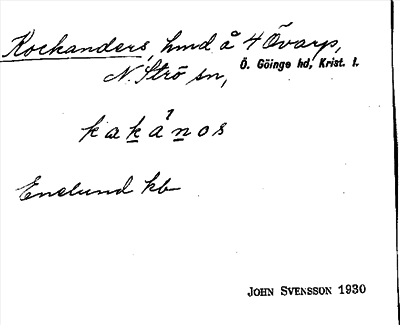 Kockanders, hmd å 4 Övarp,
N. Strö sn, Ö. Göinge hd, Krist. l.
kakános
Enslund kb
JOHN SVENSSON 1930